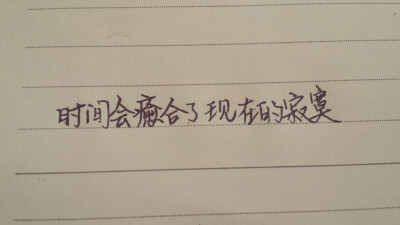 时间会癒合了现在的寂寞